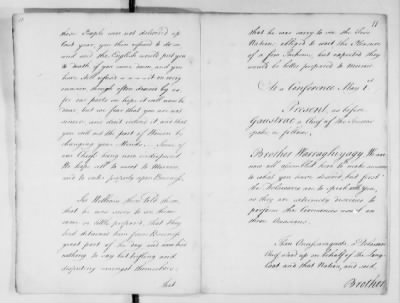 these People were not delivered up
last year, you then refused to do so
and said the English would put you
to death if you came down, and you
have still refused it in every
manner, though often desired by us,
for our parts we hope it will now be
done, but we fear that you are not
sincere, and don't intend it and that
you will act the part of Women by
changing your Minds. Some of
our Chiefs
We hope still to meet
and to enter properly upon Business.
Sir William then told them
that he was sorry to see them
come so little prepared, that they
had detained him from Business
great part of the day and now had
nothing to say but trifling and
disputing amongst themselves.
that
11
that he was sorry to see the Six
Nations obliged to wait the Pleasure
of a few Indians, but expected they
would be better prepared to Morrow
At a Conference May 1st
Present, as before
a Chief of the
spoke as follows.
Brother Warraghiyagey We are
now all assembled here to make answer
to what you have desired but first
the Delawares are to speak with you,
as they are extremely desirous to
perform the Ceremonies usual on
these Occasions.
Then a Delaware
Chief stood up on behalf of the Long
Coat and that Nation, and said,
Brother